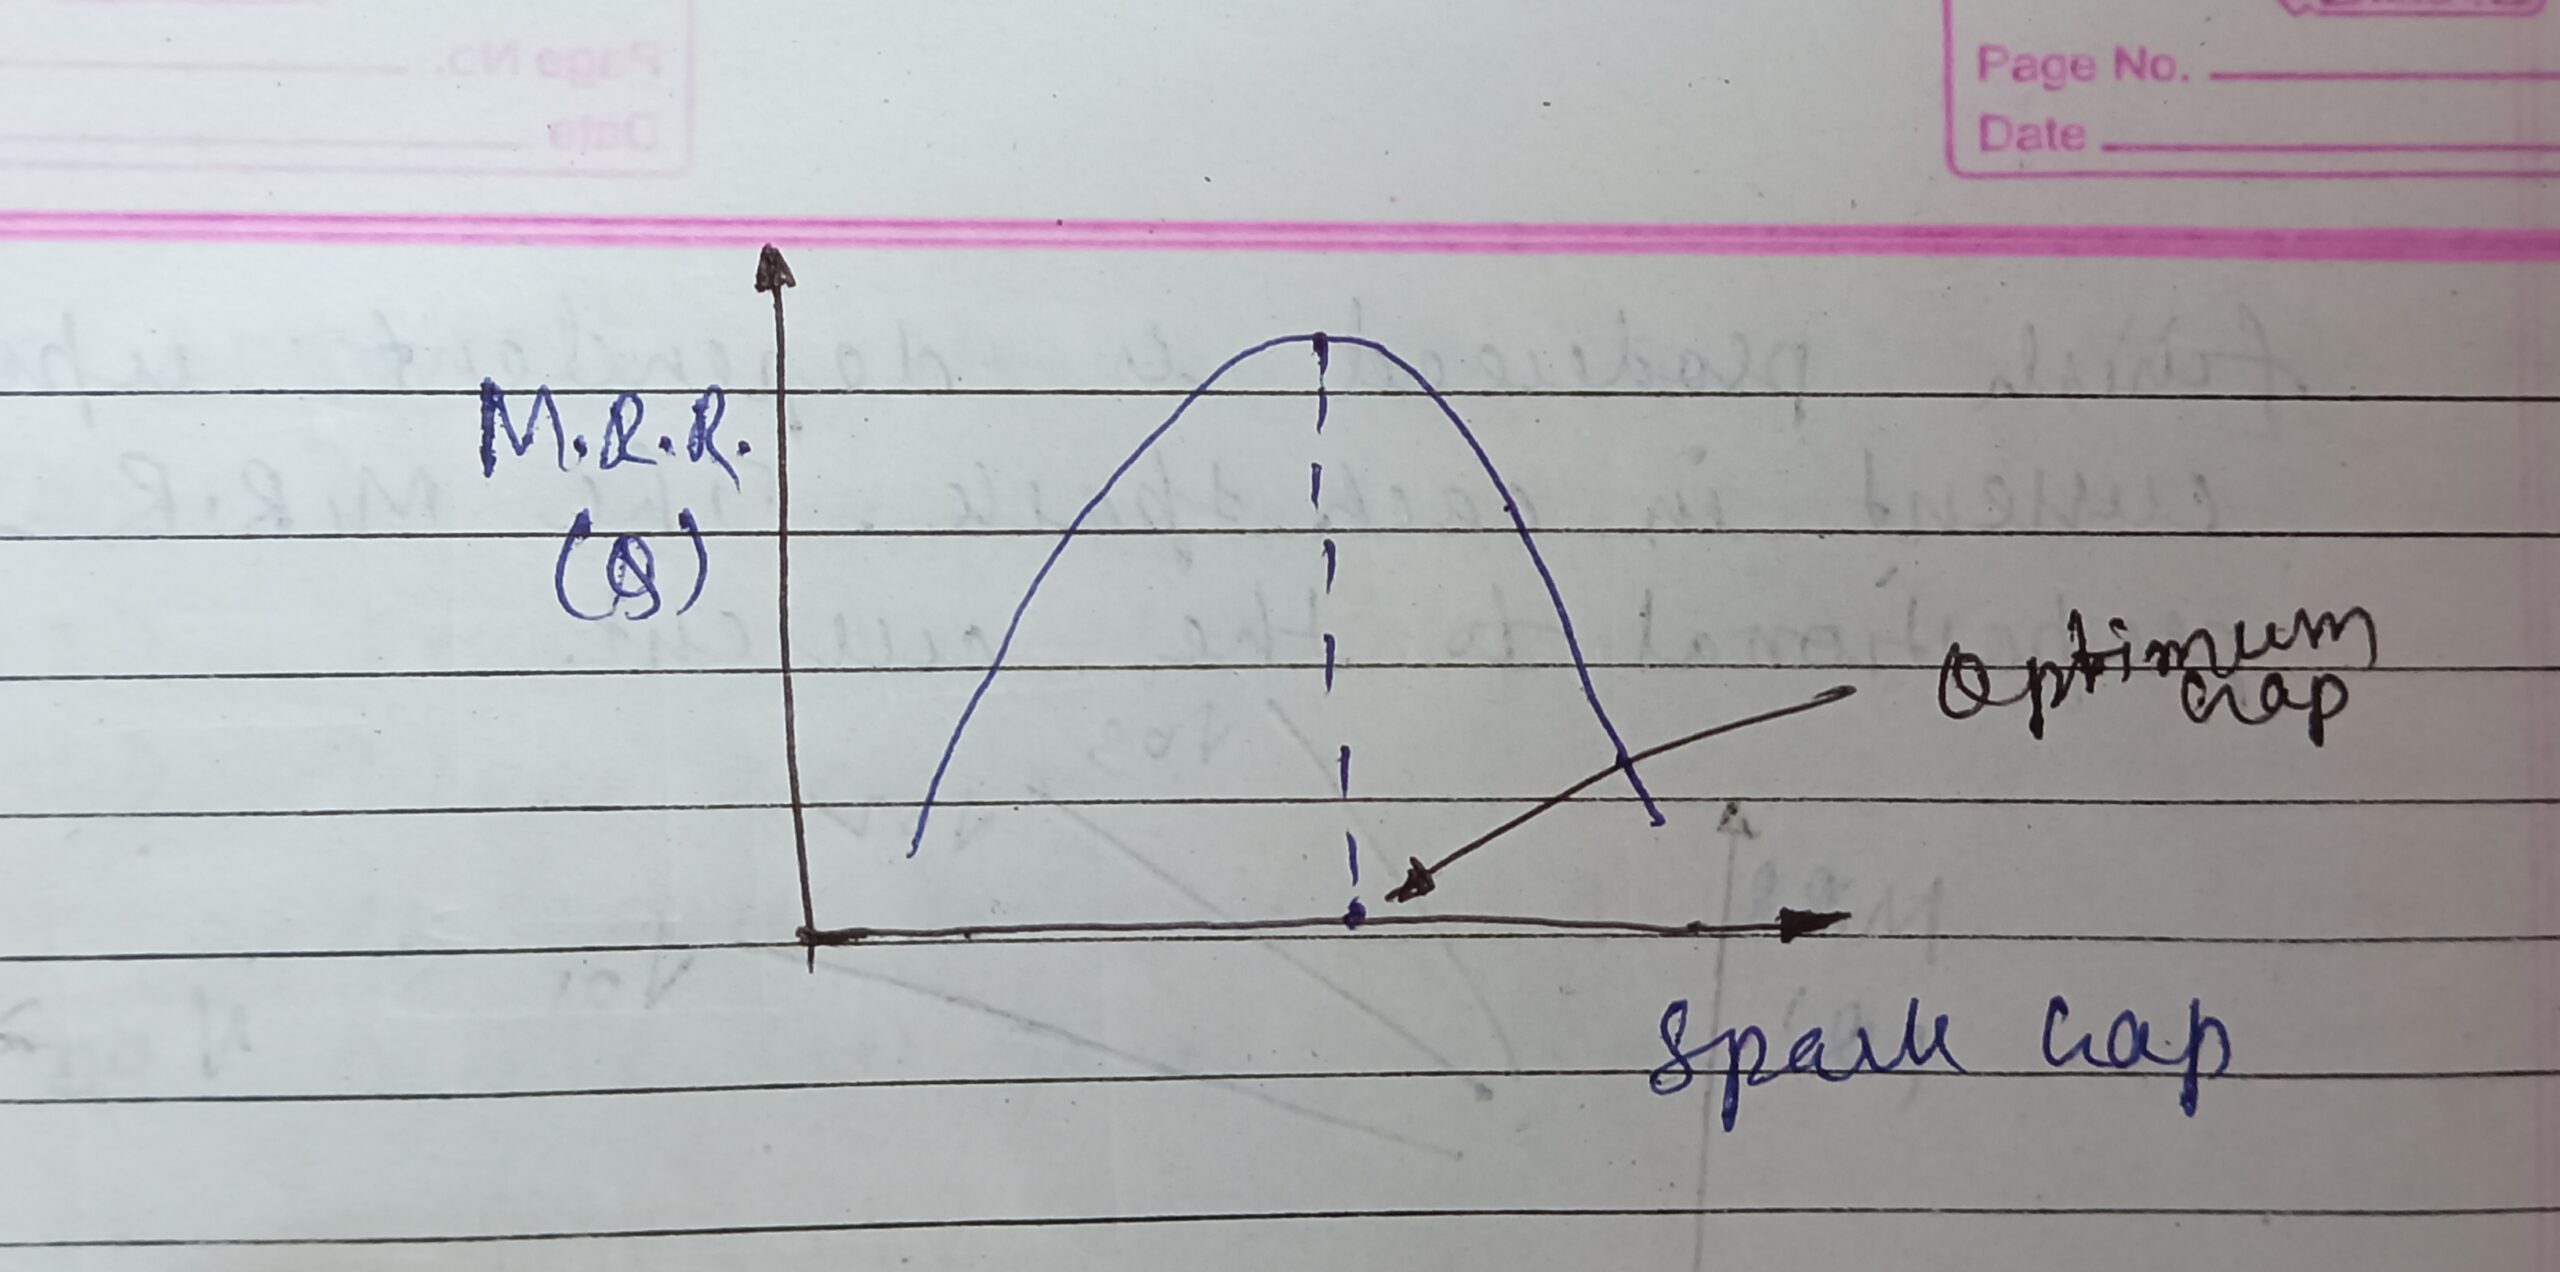 Page No.
Date
M.R.R.
(Q)
Optimum
Gap
Spark Gap